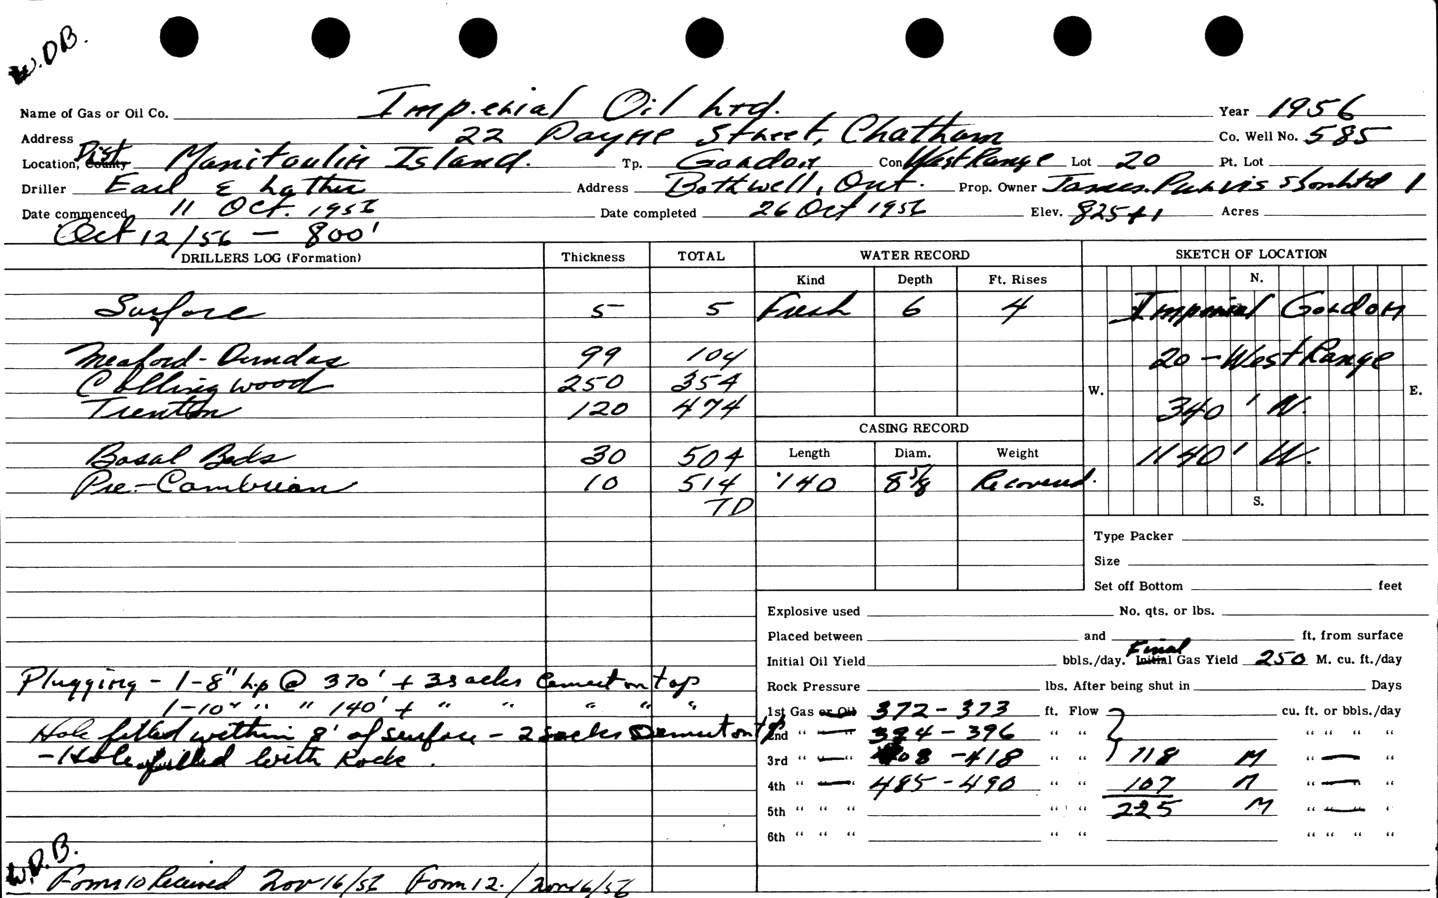 W.D.B.
Name of Gas or Oil Co. Imperial Oil Ltd. Year 1956
Address 22 Payne Street, Chatham Co. Well No. 585
Location, County Dist Manitoulin Island. Tp. Gordon Con West Range Lot 20 Pt. Lot
Driller Earl E Lather Address Bothwell, Ont. Prop. Owner James Purvis & Son Ltd
Date commenced 11 Oct. 1956 Date completed 26 Oct 1956 Elev. 825 Acres
Oct 12/56 — 800'
DRILLERS LOG (Formation) Thickness TOTAL WATER RECORD SKETCH OF LOCATION
Kind Depth Ft. Rises N.
Surface 5 5 Fresh 6 4 Imperial Gordon
Meaford - Dundas 99 104 20 - West Range
Collingwood 250 354 W. E.
Trenton 120 474 340' N.
CASING RECORD
Basal Beds 30 504 Length Diam. Weight 1140' W.
Pre-Cambrian 10 514 140 8 5/8 Recovered.
TD S.
Type Packer
Size
Set off Bottom feet
Explosive used No. qts. or lbs.
Placed between and ft. from surface
Initial Oil Yield bbls./day. Initial Final Gas Yield 250 M. cu. ft./day
Plugging - 1-8" l.p @ 370' + 3 sacks Cement on top
Rock Pressure lbs. After being shut in Days
1-10" " " 140' + " " " " "
1st Gas or Oil 372 - 373 ft. Flow cu. ft. or bbls./day
Hole filled within 8' of surface - 2 sacks Cement on top
2nd " " 394 - 396 " " " " " "
- Hole filled with Rock.
3rd " " 408 - 418 " " 118 M " "
4th " " 485 - 490 " " 107 M " "
5th " " " " " 225 M " "
6th " " " " " " " " "
W.D.B.
Form 10 Received Nov 16/56 Form 12. / Nov 16/56